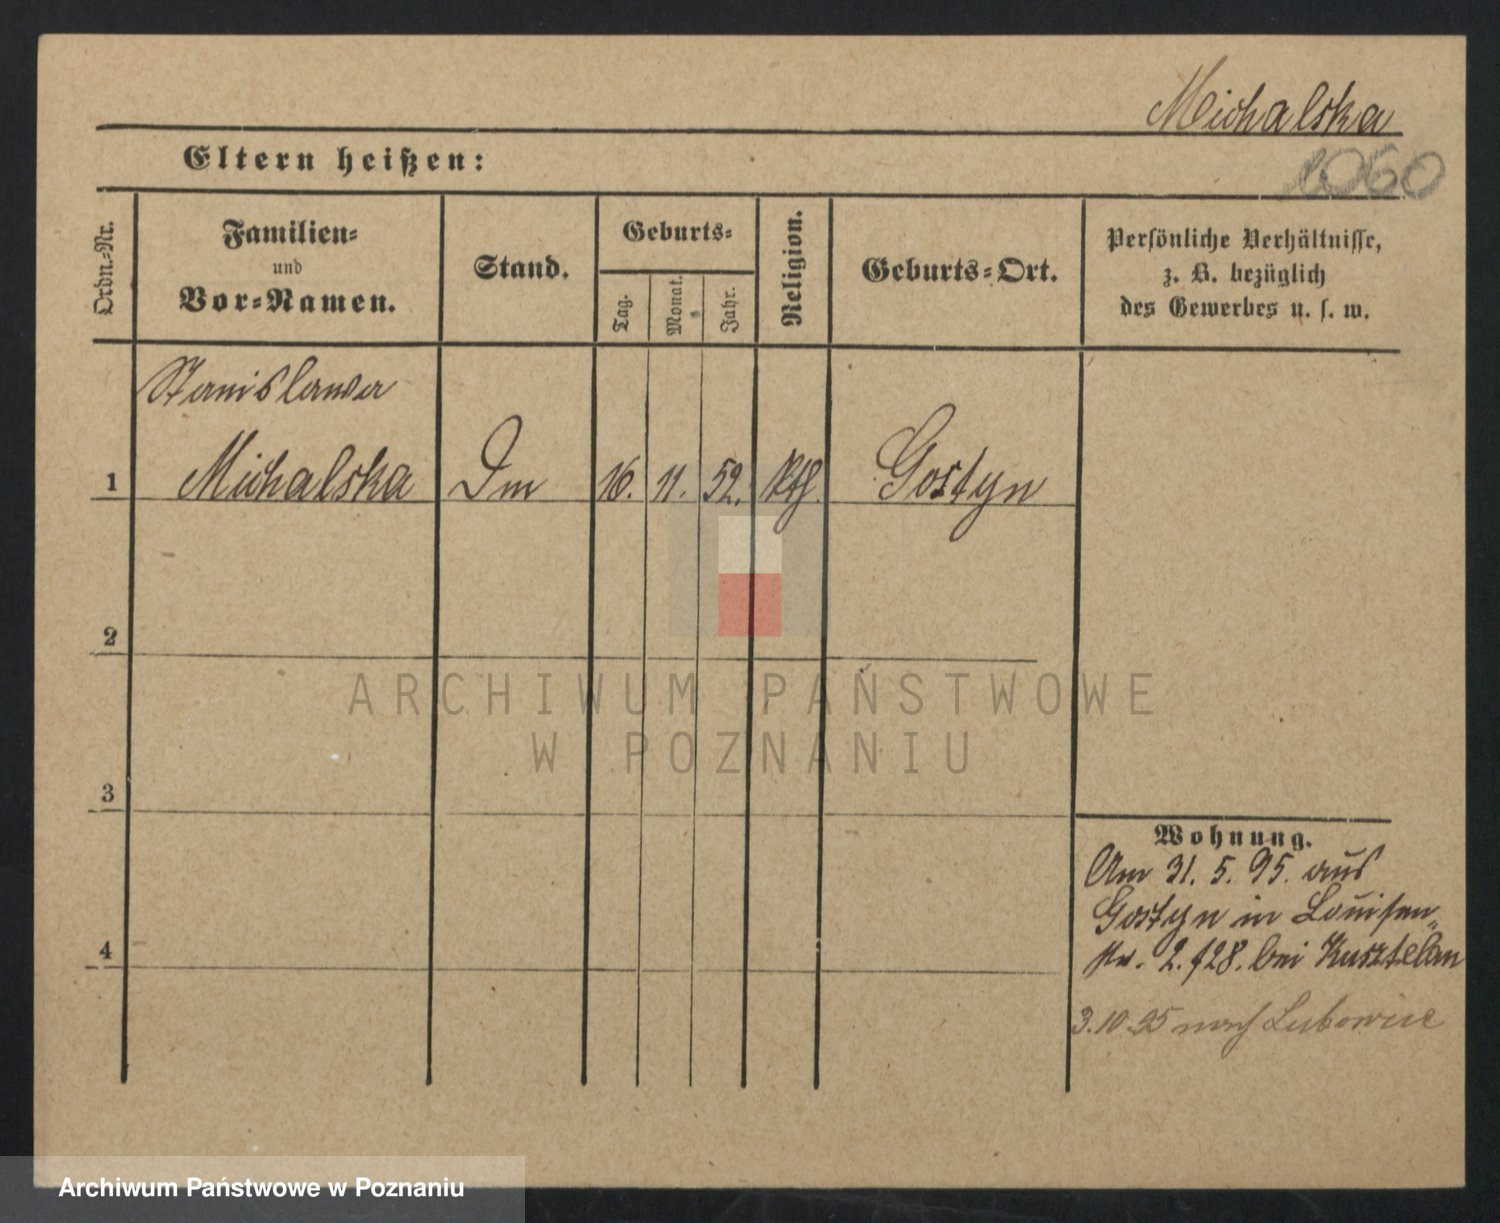 Michalska
1060
Eltern heißen:
Ordn.-Nr.
Familien-
und
Vor-Namen.
Stand.
Geburts-
Tag.
Monat.
Jahr.
Religion.
Geburts-Ort.
Persönliche Verhältnisse,
z. B. bezüglich
des Gewerbes u. s. w.
Stanislawa
1 Michalska 16. 11. 52. kth. Gostyn
2
3
4
Wohnung.
Am 31. 5. 95. aus
Gostyn in Louisen-
str. 2. bei Kusztelan
3.10.95 nach
ARCHIWUM PAŃSTWOWE
W POZNANIU
Archiwum Państwowe w Poznaniu